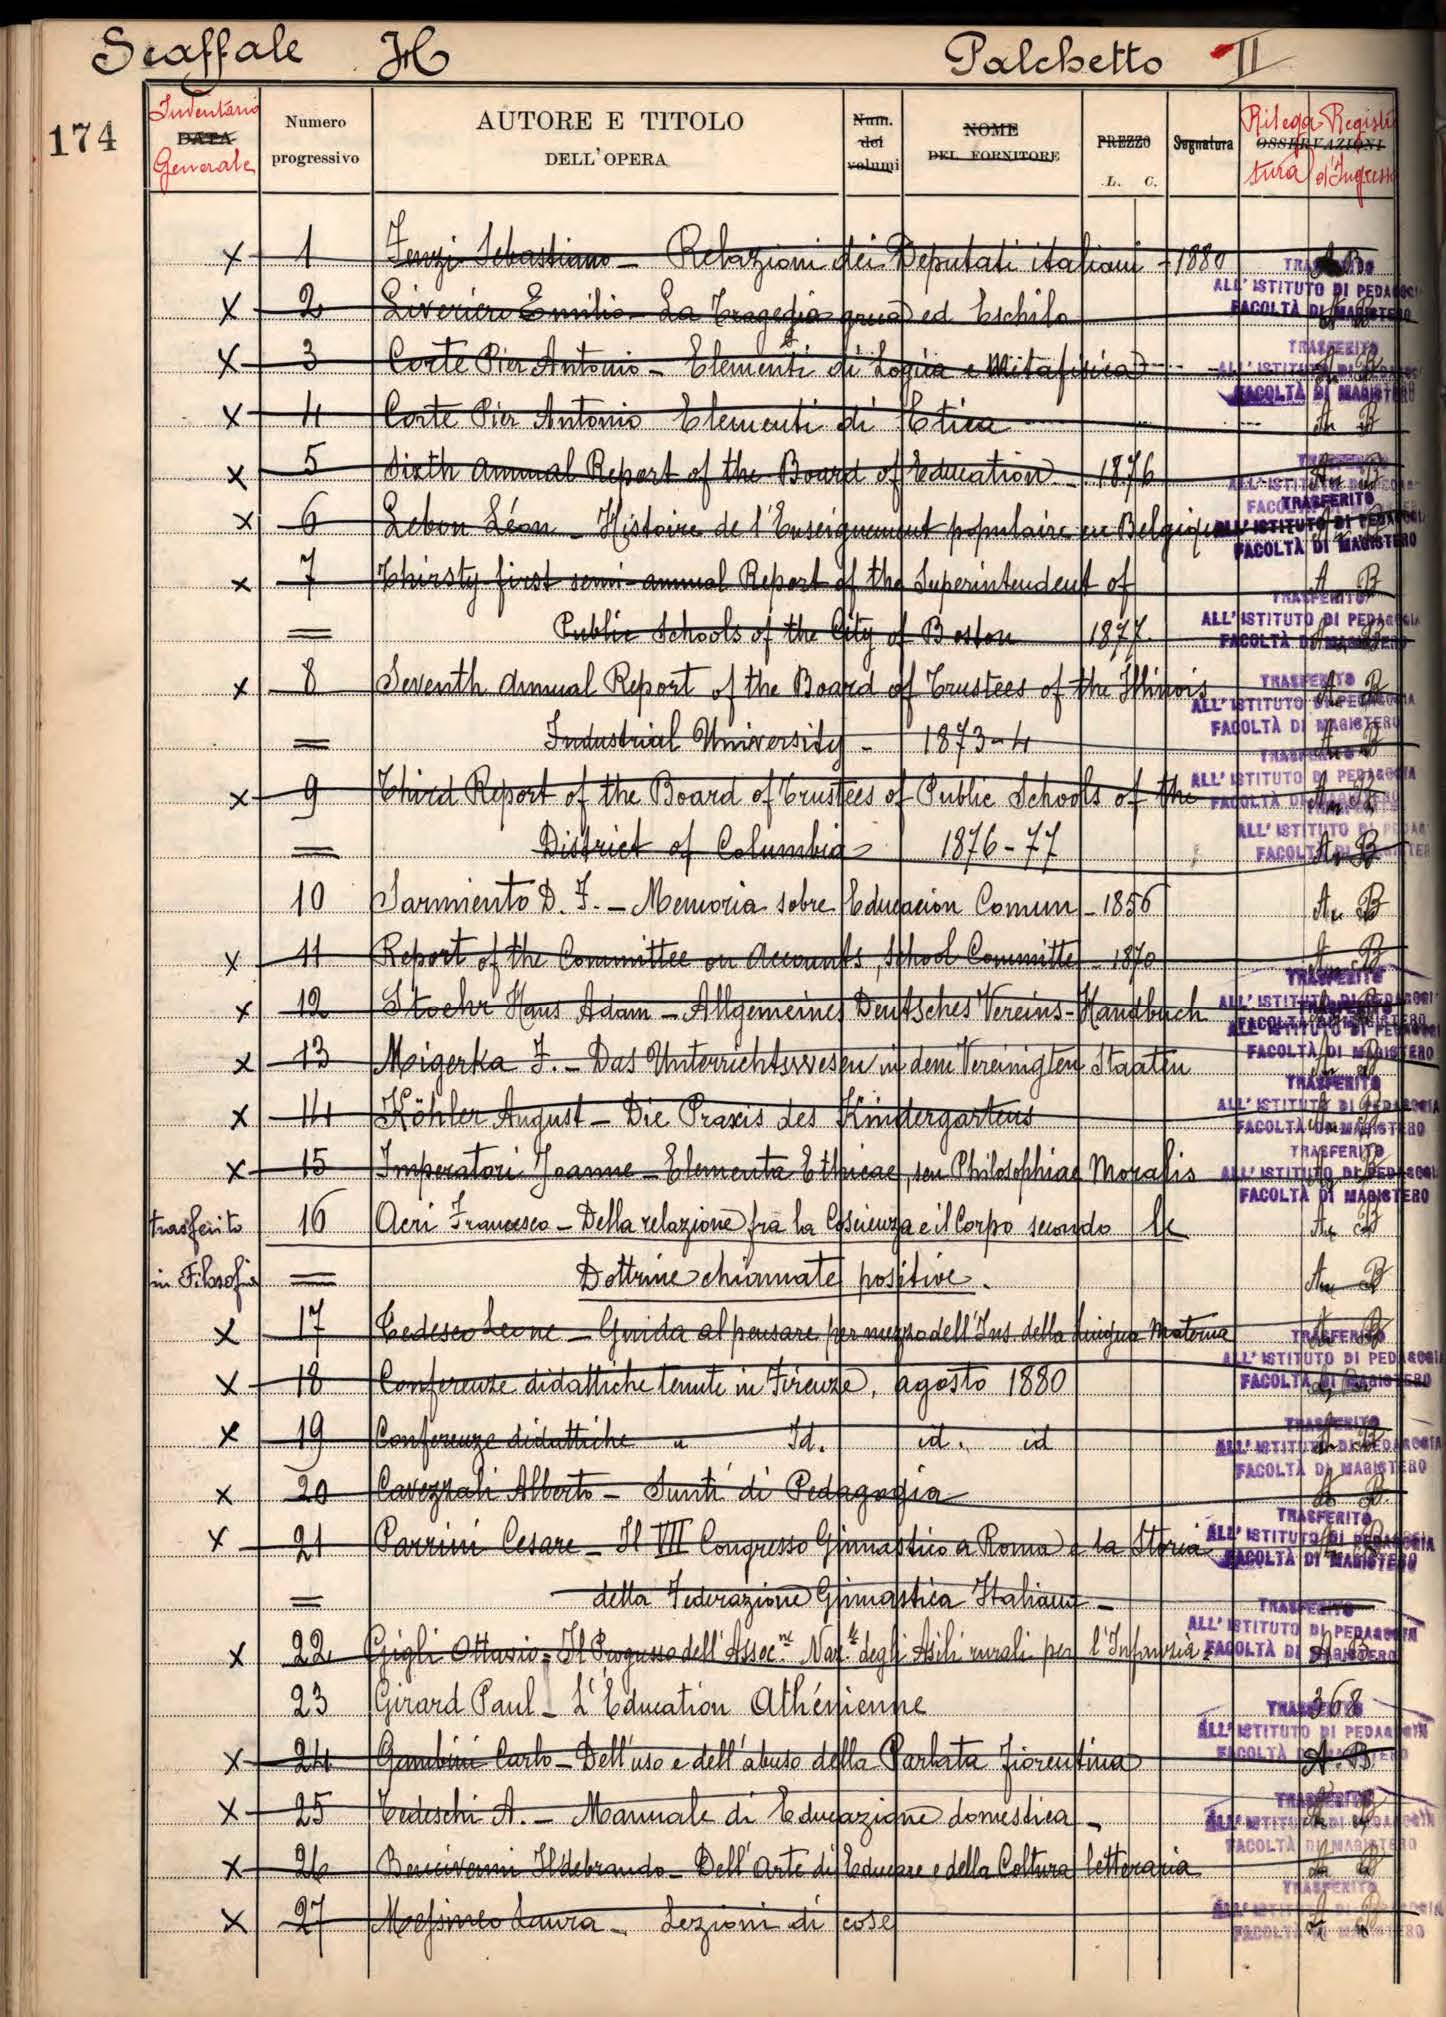 Scaffale H Palchetto II
174
Inventario Generale
DATA
Numero progressivo
AUTORE E TITOLO DELL'OPERA
Num. dei volumi
NOME DEL FORNITORE
PREZZO L. C.
Segnatura
OSSERVAZIONI
Rilegatura
Registro d'Ingresso
X 1 Fenzi Sebastiano – Relazioni dei Deputati italiani – 1880 A B
TRASFERITO
ALL'ISTITUTO DI PEDAGOGIA
FACOLTÀ DI MAGISTERO
X 2 Emilio – La Tragedia greca ed Eschilo
X 3 Corte Pier Antonio – Elementi di Logica e Mitafisica
TRASFERITO
ALL'ISTITUTO DI PEDAGOGIA
FACOLTÀ DI MAGISTERO
X 4 Corte Pier Antonio Elementi di Etica A B
X 5 Sixth Annual Report of the Board of Education – 1876
X 6 Lebon Léon – Histoire de l'Enseignement populaire en Belgique
TRASFERITO
ALL'ISTITUTO DI PEDAGOGIA
FACOLTÀ DI MAGISTERO
X 7 Thirsty-first semi-annual Report of the Superintendent of A B
= Public Schools of the City of Boston 1877.
TRASFERITO
ALL'ISTITUTO DI PEDAGOGIA
FACOLTÀ DI MAGISTERO
X 8 Seventh Annual Report of the Board of Trustees of the Illinois A B
TRASFERITO
ALL'ISTITUTO DI PEDAGOGIA
FACOLTÀ DI MAGISTERO
= Industrial University – 1873-4 A B
X 9 Third Report of the Board of Trustees of Public Schools of the
TRASFERITO
ALL'ISTITUTO DI PEDAGOGIA
FACOLTÀ DI MAGISTERO
= District of Columbia – 1876-77 A B
ALL'ISTITUTO DI PEDAGOGIA
FACOLTÀ DI MAGISTERO
10 Sarmiento D. F. – Memoria sobre Educacion Comun – 1856 A B
X 11 Report of the Committee on Accounts, School Committe – 1870 A B
X 12 Stoehr Hans Adam – Allgemeines Deutsches Vereins-Handbuch
TRASFERITO
ALL'ISTITUTO DI PEDAGOGIA
FACOLTÀ DI MAGISTERO
X 13 Migerka F. – Das Unterrichtswesen in dem Vereinigten Staaten
ALL'ISTITUTO DI PEDAGOGIA
FACOLTÀ DI MAGISTERO
X 14 Köhler August – Die Praxis des Kindergartens
TRASFERITO
ALL'ISTITUTO DI PEDAGOGIA
FACOLTÀ DI MAGISTERO
X 15 Imperatori Joanne – Elementa Ethicae, seu Philosophiae Moralis
TRASFERITO
ALL'ISTITUTO DI PEDAGOGIA
FACOLTÀ DI MAGISTERO
trasferito 16 Acri Francesco – Della relazione fra la Coscienza e il Corpo secondo le A B
in Filosofia = Dottrine chiamate positive. A B
X 17 Tedesco Leone – Guida al pensare per mezzo dell'Ins. della lingua Materna A B
X 18 Conferenze didattiche tenute in Firenze, agosto 1880
TRASFERITO
ALL'ISTITUTO DI PEDAGOGIA
FACOLTÀ DI MAGISTERO
X 19 Conferenze didattiche " Id. id. id
TRASFERITO
ALL'ISTITUTO DI PEDAGOGIA
FACOLTÀ DI MAGISTERO
X 20 Alberto – Sunti di Pedagogia A B.
X 21 Parrini Cesare – Il VII Congresso Ginnastico a Roma e la Storia
TRASFERITO
ALL'ISTITUTO DI PEDAGOGIA
FACOLTÀ DI MAGISTERO
= della Federazione Ginnastica Italiana –
X 22 Gigli Ottavio – Il Progresso dell'Assoc.ne Naz.le degli Asili rurali per l'Infanzia
TRASFERITO
ALL'ISTITUTO DI PEDAGOGIA
FACOLTÀ DI MAGISTERO
23 Girard Paul – L'Education Athénienne 368
X 24 Gambini Carlo – Dell'uso e dell'abuso della Parlata fiorentina A. B.
TRASFERITO
ALL'ISTITUTO DI PEDAGOGIA
FACOLTÀ DI MAGISTERO
X 25 Tedeschi A. – Manuale di Educazione domestica –
TRASFERITO
ALL'ISTITUTO DI PEDAGOGIA
FACOLTÀ DI MAGISTERO
X 26 Bencivenni Ildebrando – Dell'Arte di Educare e della Coltura letteraria
X 27 Laura – Lezioni di cose
TRASFERITO
ALL'ISTITUTO DI PEDAGOGIA
FACOLTÀ DI MAGISTERO